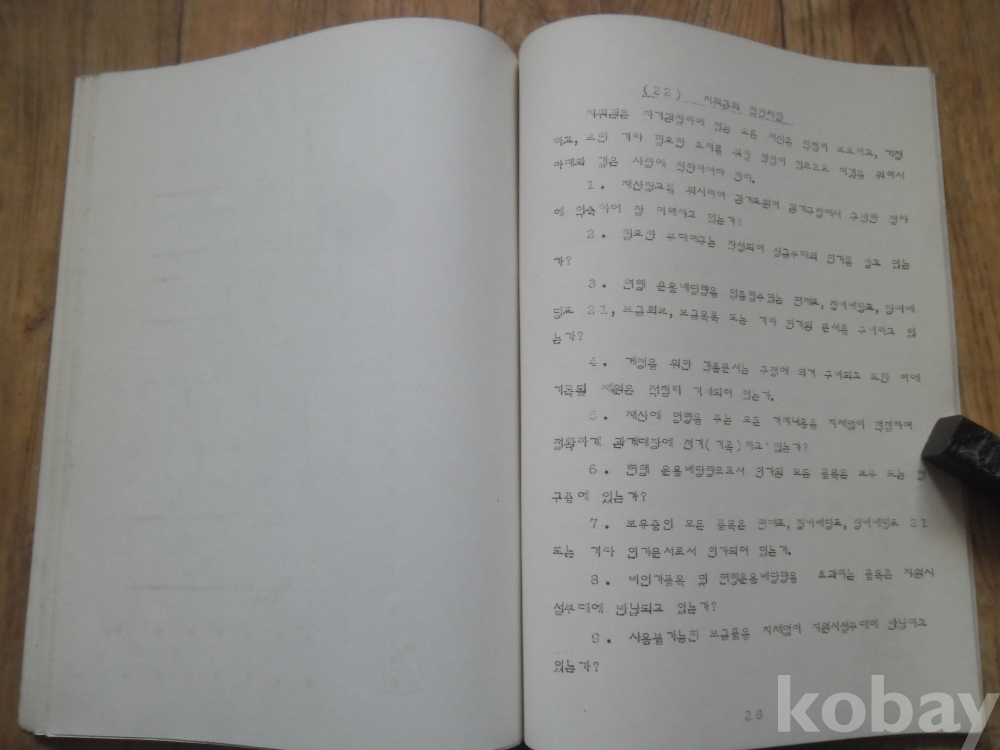 (22) 지휘관의 점검사항
지휘관은 자기관장하에 있는 모든 재산을 적절히 보호하고, 계정
하고, 또한 기타 필요한 조치를 취할 책임이 있으므로 이것을 위해서
아래와 같은 사항에 착안하여야 한다.
1. 재산장교를 위시하여 관계요원이 관계규정에서 구정한 절차
에 익숙하여 잘 이해하고 있는가?
2. 필요한 부대에구는 작성되어 상급부대의 인가를 받고 있는
가?
3. 현행 운용배당량을 입증할수있는 편제표, 장비배당표, 장비배
당표 21, 보급회보, 보급목록 또는 기타 인가된 문서를 구비하고 있
는가?
4. 계정을 위한 각종문서는 규정에 의거 구비되고 또한 이에
기록될 제원은 적절히 기재되어 있는가.
5. 재산에 영향을 주는 모든 거래내용을 지체없이 적절하며
정확하게 관계대장에 전기(기록)하고 있는가?
6. 현행 운용배당량으로서 인가된 모든 품목을 보유 또는 청
구중에 있는가?
7. 보유중인 모든 품목은 편제표, 장비배당표, 장비배당표 21
또는 기타 인가문서로서 인가되어 있는가.
8. 비인가품목 및 현행운용배당량을 초과하는 품목은 지원시
설부대에 반납되고 있는가?
9. 사용불가능한 보급품을 지체없이 지원시설부대에 반납하고
있는가?
28
kobay